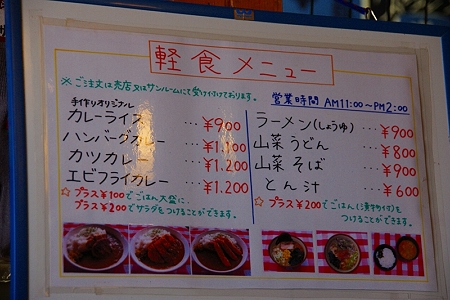 軽食メニュー
※ご注文は売店又はサンルームにて受け付けております。
営業時間 AM11:00～PM2:00
手作りオリジナル
カレーライス …¥900
ハンバーグカレー
カツカレー …¥1.200
エビフライカレー …¥1.200
☆プラス¥100でごはん大盛に、
プラス¥200でサラダをつけることができます。
ラーメン(しょうゆ) …¥900
山菜うどん …¥800
山菜そば …¥900
とん汁 …¥600
☆プラス¥200でごはん(漬物付)を
つけることができます。